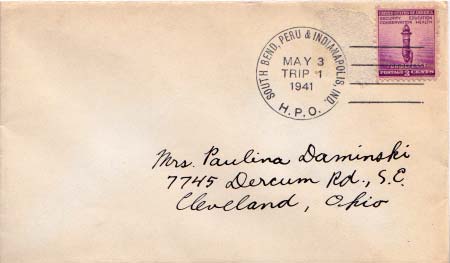 UNITED STATES OF AMERICA
SECURITY EDUCATION
CONSERVATION HEALTH
POSTAGE 3 CENTS
SOUTH BEND, PERU & INDIANAPOLIS, IND.
MAY 3
TRIP 1
1941
H.P.O.
Mrs. Paulina Daminski
7745 Dercum Rd., S.E.
Cleveland, Ohio